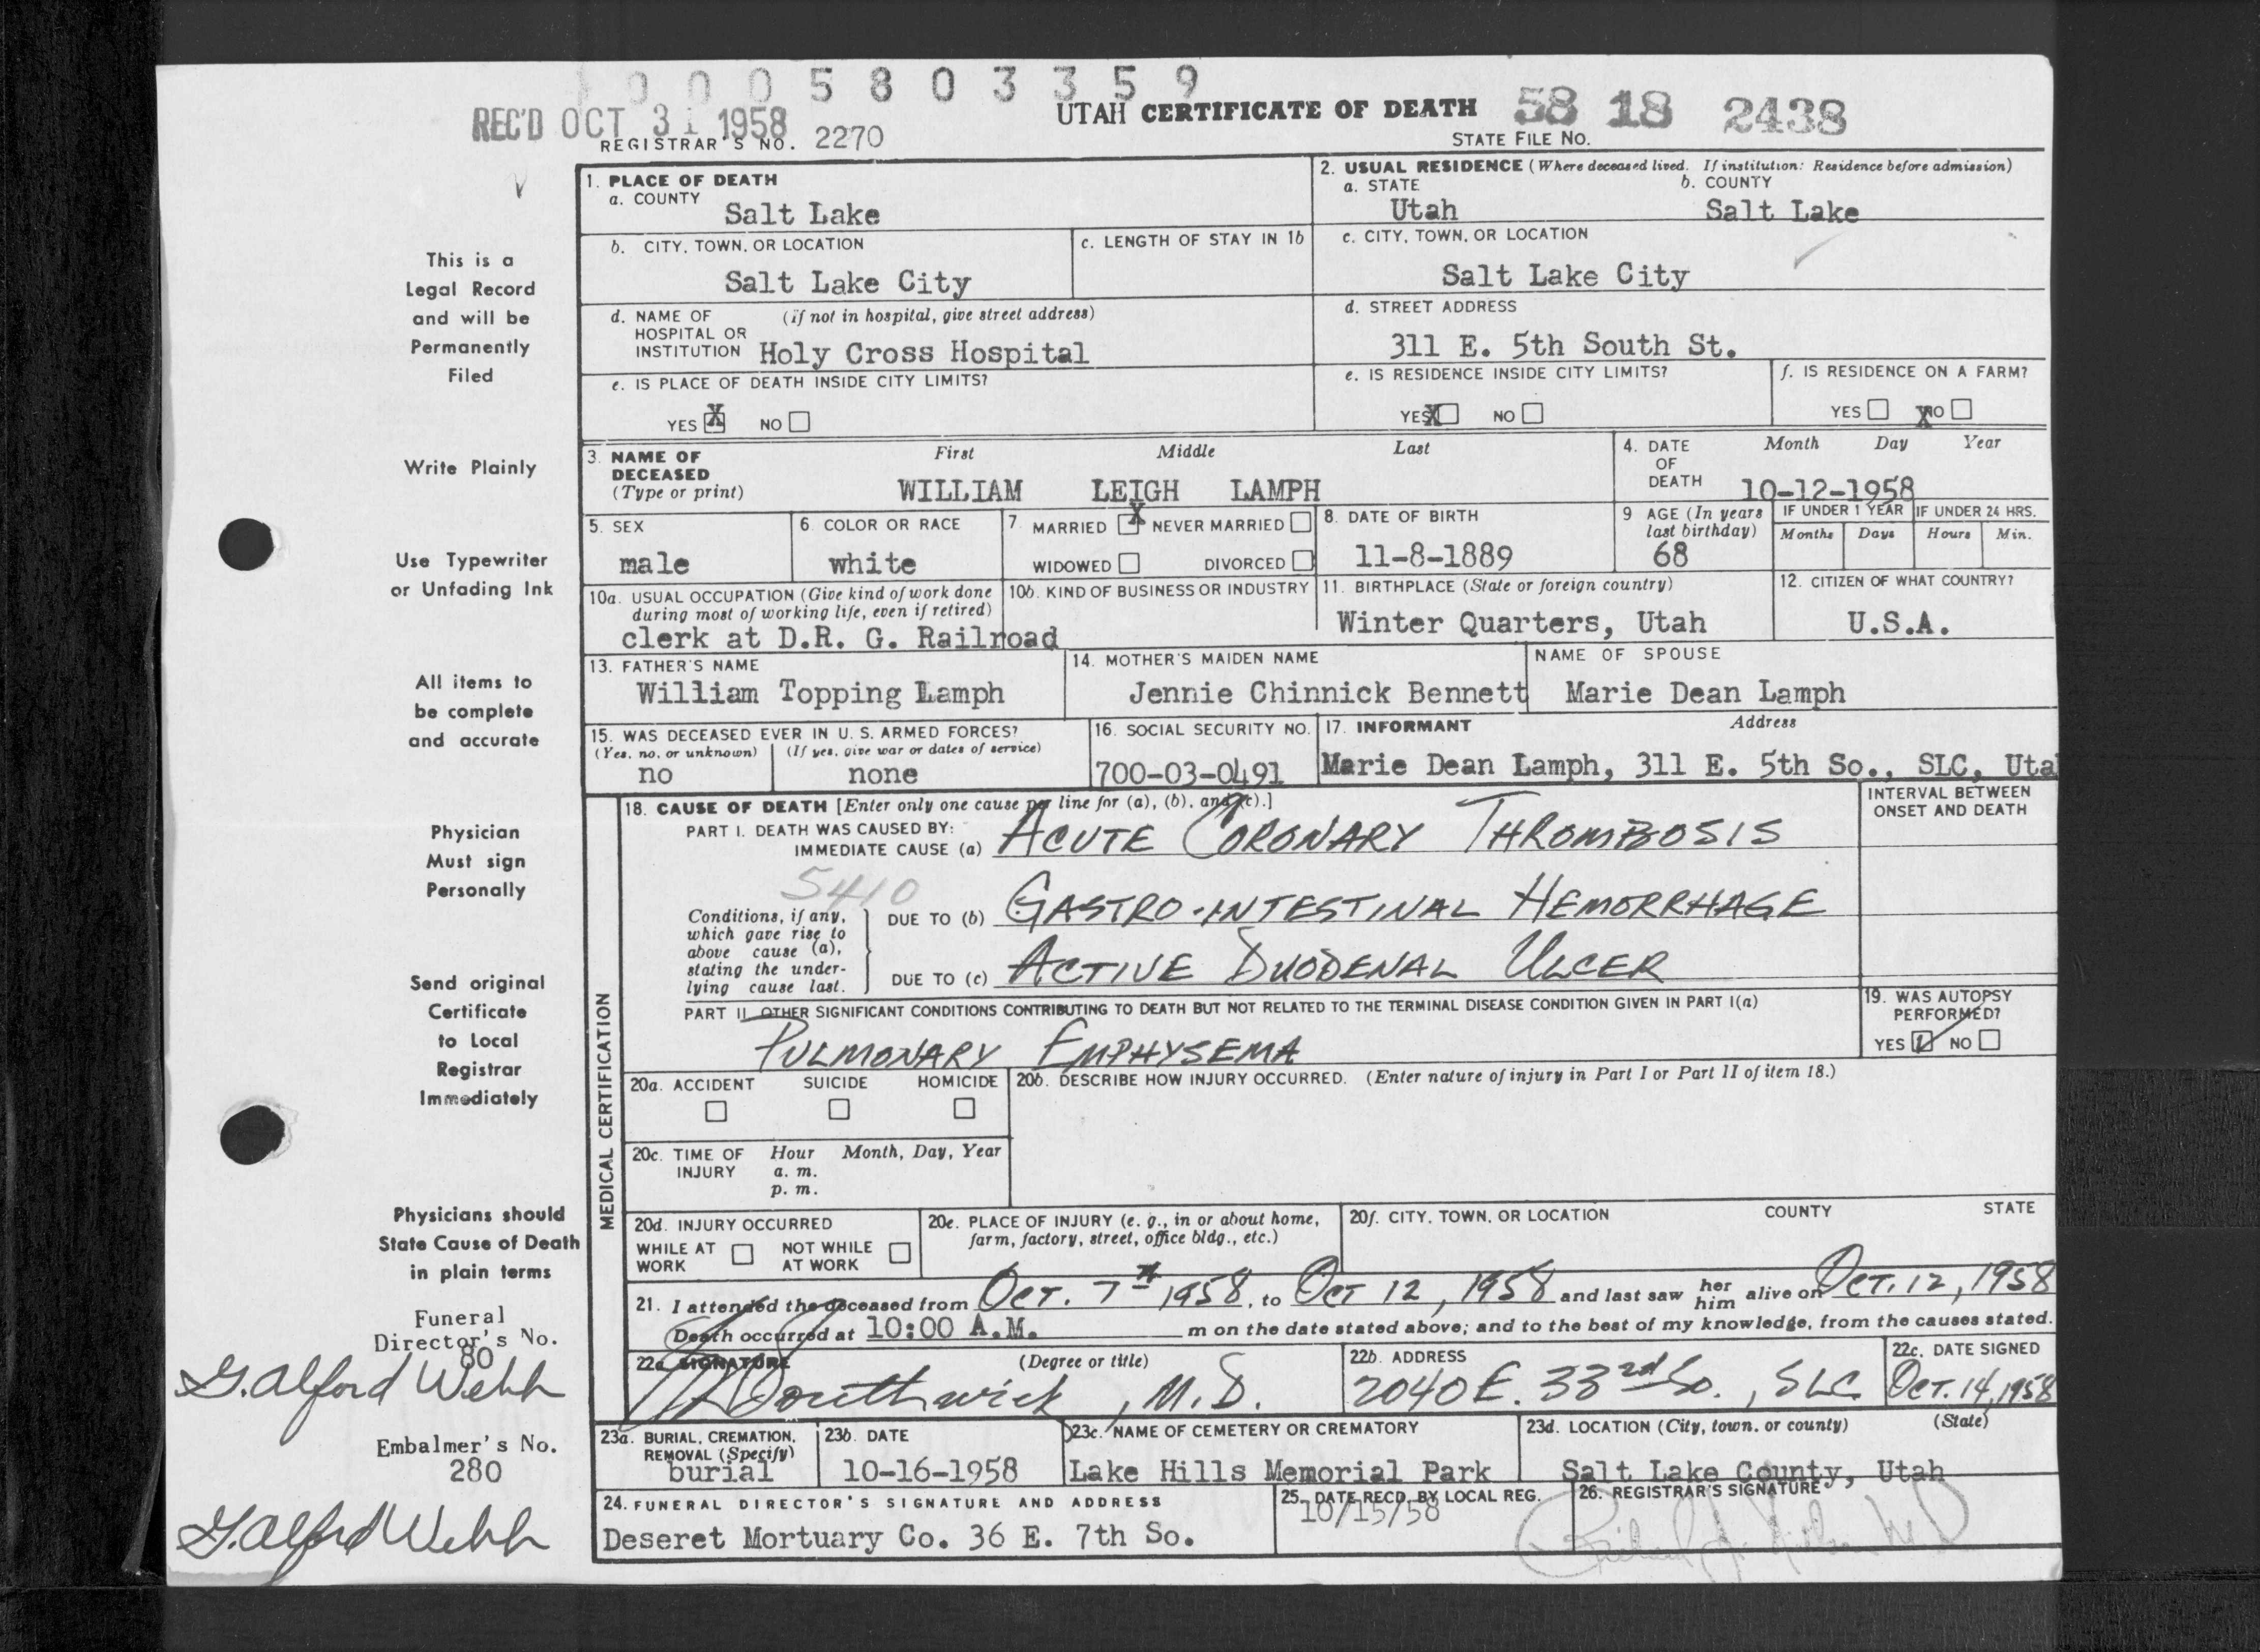 0 0 0 5 8 0 3 3 5 9
REC'D OCT 31 1958
UTAH CERTIFICATE OF DEATH 58 18 2438
REGISTRAR'S NO. 2270
STATE FILE NO.
This is a
Legal Record
and will be
Permanently
Filed
Write Plainly
Use Typewriter
or Unfading Ink
All items to
be complete
and accurate
Physician
Must sign
Personally
Send original
Certificate
to Local
Registrar
Immediately
Physicians should
State Cause of Death
in plain terms
Funeral
Director's No.
80
G. Alford Webb
Embalmer's No.
280
G. Alford Webb
1. PLACE OF DEATH
a. COUNTY
Salt Lake
2. USUAL RESIDENCE (Where deceased lived. If institution: Residence before admission)
a. STATE b. COUNTY
Utah Salt Lake
b. CITY, TOWN, OR LOCATION
Salt Lake City
c. LENGTH OF STAY IN 1b
c. CITY, TOWN, OR LOCATION
Salt Lake City
d. NAME OF (If not in hospital, give street address)
HOSPITAL OR
INSTITUTION Holy Cross Hospital
d. STREET ADDRESS
311 E. 5th South St.
e. IS PLACE OF DEATH INSIDE CITY LIMITS?
YES X NO
e. IS RESIDENCE INSIDE CITY LIMITS?
YES X NO
f. IS RESIDENCE ON A FARM?
YES X NO
3. NAME OF DECEASED
(Type or print)
First Middle Last
WILLIAM LEIGH LAMPH
4. DATE OF DEATH
Month Day Year
10-12-1958
5. SEX
male
6. COLOR OR RACE
white
7. MARRIED X NEVER MARRIED
WIDOWED DIVORCED
8. DATE OF BIRTH
11-8-1889
9 AGE (In years
last birthday)
68
IF UNDER 1 YEAR
Months Days
IF UNDER 24 HRS.
Hours Min.
10a. USUAL OCCUPATION (Give kind of work done
during most of working life, even if retired)
clerk at D.R. G. Railroad
10b. KIND OF BUSINESS OR INDUSTRY
11. BIRTHPLACE (State or foreign country)
Winter Quarters, Utah
12. CITIZEN OF WHAT COUNTRY?
U.S.A.
13. FATHER'S NAME
William Topping Lamph
14. MOTHER'S MAIDEN NAME
Jennie Chinnick Bennett
NAME OF SPOUSE
Marie Dean Lamph
15. WAS DECEASED EVER IN U. S. ARMED FORCES?
(Yes, no, or unknown) (If yes, give war or dates of service)
no none
16. SOCIAL SECURITY NO.
700-03-0491
17. INFORMANT Address
Marie Dean Lamph, 311 E. 5th So., SLC, Uta
MEDICAL CERTIFICATION
18. CAUSE OF DEATH [Enter only one cause per line for (a), (b), and (c).]
INTERVAL BETWEEN
ONSET AND DEATH
PART I. DEATH WAS CAUSED BY:
IMMEDIATE CAUSE (a) ACUTE CORONARY THROMBOSIS
5410
Conditions, if any,
which gave rise to
above cause (a),
stating the under-
lying cause last.
DUE TO (b) GASTRO-INTESTINAL HEMORRHAGE
DUE TO (c) ACTIVE DUODENAL ULCER
PART II. OTHER SIGNIFICANT CONDITIONS CONTRIBUTING TO DEATH BUT NOT RELATED TO THE TERMINAL DISEASE CONDITION GIVEN IN PART I(a)
PULMONARY EMPHYSEMA
19. WAS AUTOPSY
PERFORMED?
YES NO
20a. ACCIDENT SUICIDE HOMICIDE
20b. DESCRIBE HOW INJURY OCCURRED. (Enter nature of injury in Part I or Part II of item 18.)
20c. TIME OF INJURY
Hour Month, Day, Year
a. m.
p. m.
20d. INJURY OCCURRED
WHILE AT WORK NOT WHILE AT WORK
20e. PLACE OF INJURY (e. g., in or about home,
farm, factory, street, office bldg., etc.)
20f. CITY, TOWN, OR LOCATION COUNTY STATE
21. I attended the deceased from OCT. 7th 1958, to OCT 12, 1958 and last saw her him alive on OCT. 12, 1958
Death occurred at 10:00 A.M. m on the date stated above; and to the best of my knowledge, from the causes stated.
22a. SIGNATURE (Degree or title)
Southwick, M.D.
22b. ADDRESS
2040 E. 33rd So., SLC
22c. DATE SIGNED
OCT. 14, 1958
23a. BURIAL, CREMATION,
REMOVAL (Specify)
burial
23b. DATE
10-16-1958
23c. NAME OF CEMETERY OR CREMATORY
Lake Hills Memorial Park
23d. LOCATION (City, town, or county) (State)
Salt Lake County, Utah
24. FUNERAL DIRECTOR'S SIGNATURE AND ADDRESS
Deseret Mortuary Co. 36 E. 7th So.
25. DATE RECD. BY LOCAL REG.
10/15/58
26. REGISTRAR'S SIGNATURE